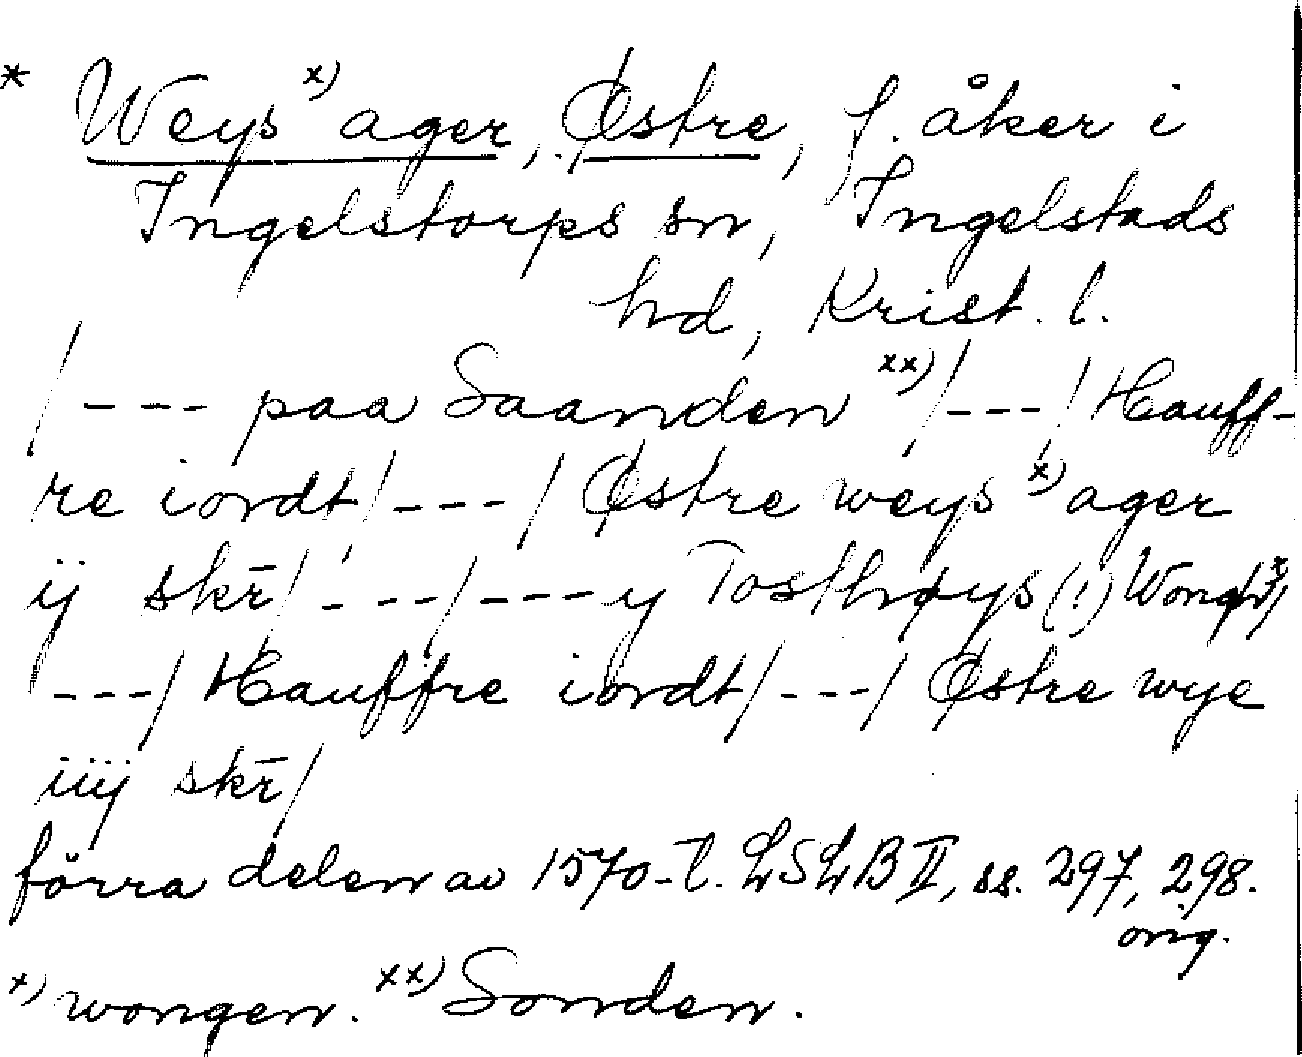 * Weys x) ager, Østre, f. åker i
Ingelstorps sn, Ingelstads
hd, Krist. l.
/--- paa Saanden xx)/---/ Hauff-
re iordt/---/ Østre weys x) ager
ij skr̄/---/---y Tosthøys (!)
---/ Hauffre iordt/---/ Østre wye
iiij skr̄/
förra delen av 1570-t. LSLB II, ss. 297, 298.
orig.
x) wongen. xx) Sonden.